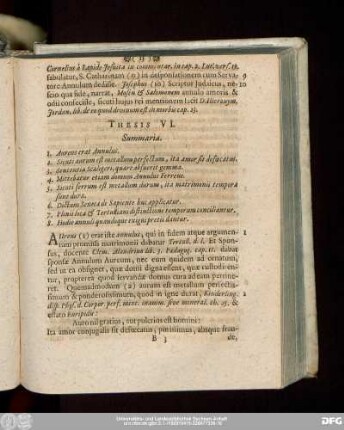 Cornelius à Lapide Jesuita in commentar. in cap. 2. Luc. vers. 19.
fabulatur, S. Catharinam (9) in desponsationem cum Serva-
tore Annulum dedisse. Josephus (10) Scriptor Judaicus, ne-
scio qua fide, narrat, Mosen & Salomonem annulo amoris &
odii confecisse, sicuti hujus rei mentionem fecit D. Hieronym.
THESIS VI.
Summaria.
1. Aureus erat Annulus.
2. Sicuti aurum est metallum perfectum, ita amor sit defæcatus.
3. Sententia Scaligeri, quare absuerit gemma.
4. Mittebatur etiam domum Annulus Ferreus.
5. Sicuti ferrum est metallum durum, ita matrimonii tempora
sunt dura.
6. Dictum Senecæ de Sapiente huc applicatur.
7. Plinii loca & Tertulliani distinctione temporum conciliantur.
8. Hodie annuli quandoque exigui pretii dantur.
Aureus (1) erat iste annulus, qui in fidem atque argumen-
tum promissi matrimonii dabatur Tertull. d. l. Et Spon-
sus, docente Clem. Alexandrino lib. 3. Pædagog. cap. 11. dabat
sponsæ Annulum Aureum, nec eum quidem ad ornatum,
sed ut ea obsignet, quæ domi digna essent, quæ custodiren-
tur, propterea quod servandæ domus cura ad eam pertine-
ret. Quemadmodum (2) aurum est metallum perfectis-
simum & ponderosissimum, quod in igne durat,
effato Euripidis:
Auro nil pratius, est pulcrius est homini:
Ita amor conjugalis sit defæcatus, purissimus, absque frau-
B 3 de,